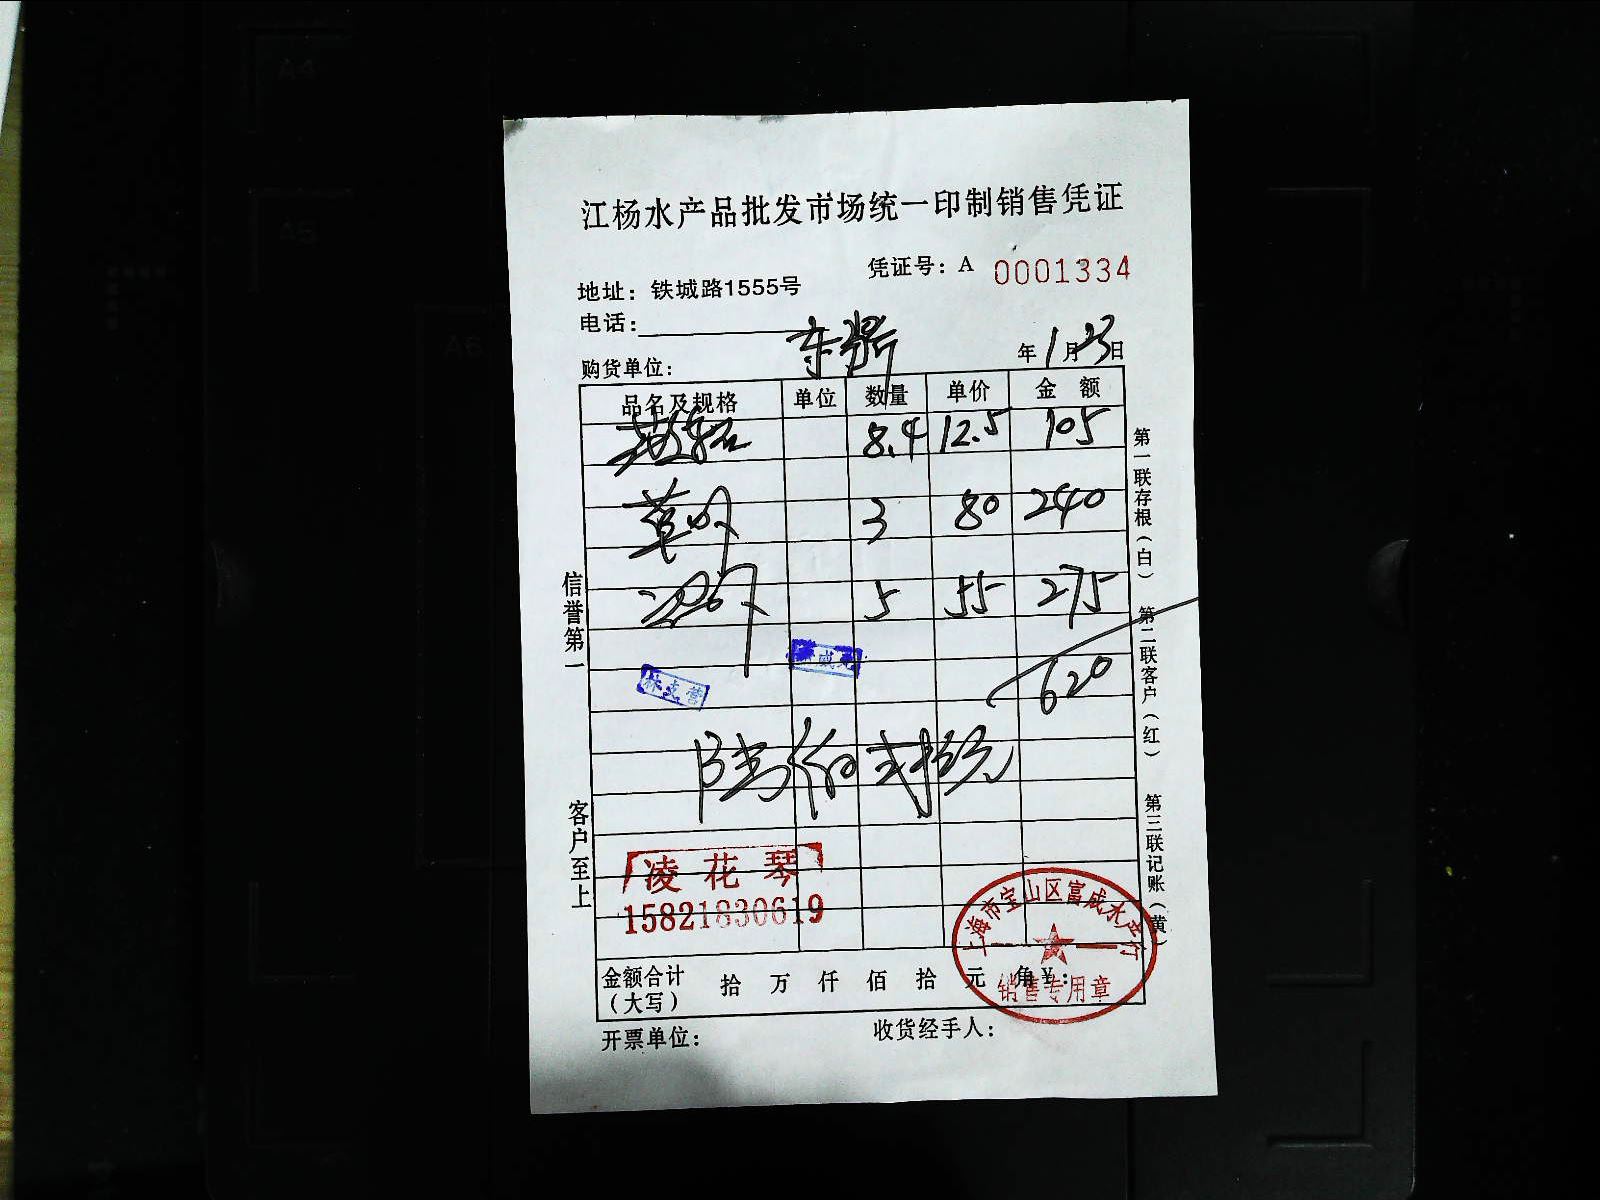 江杨水产品批发市场统一印制销售凭证
凭证号：A 0001334
地址：铁城路1555号
电话：
购货单位： 年1月23日
品名及规格 单位 数量 单价 金 额
8.4 12.5 105
草虾 3 80 240
5 55 275
620
林支营
陆佰贰拾元
凌花琴
15821830619
金额合计（大写） 拾 万 仟 佰 拾 元 角￥：
开票单位： 收货经手人：
信誉第一
客户至上
第一联存根（白） 第二联客户（红） 第三联记账（黄）
上海市宝山区富成水产行
销售专用章
A4
A5
A6